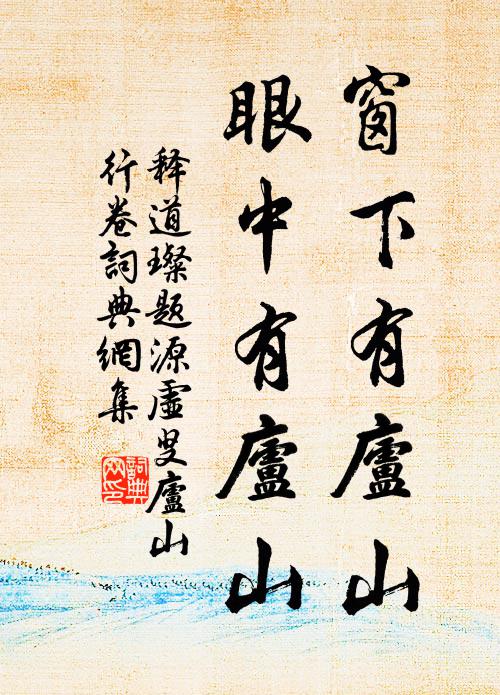 窗下有廬山
眼中有廬山
释道璨题源虛叟廬山
行卷詞典網集
詞典網印